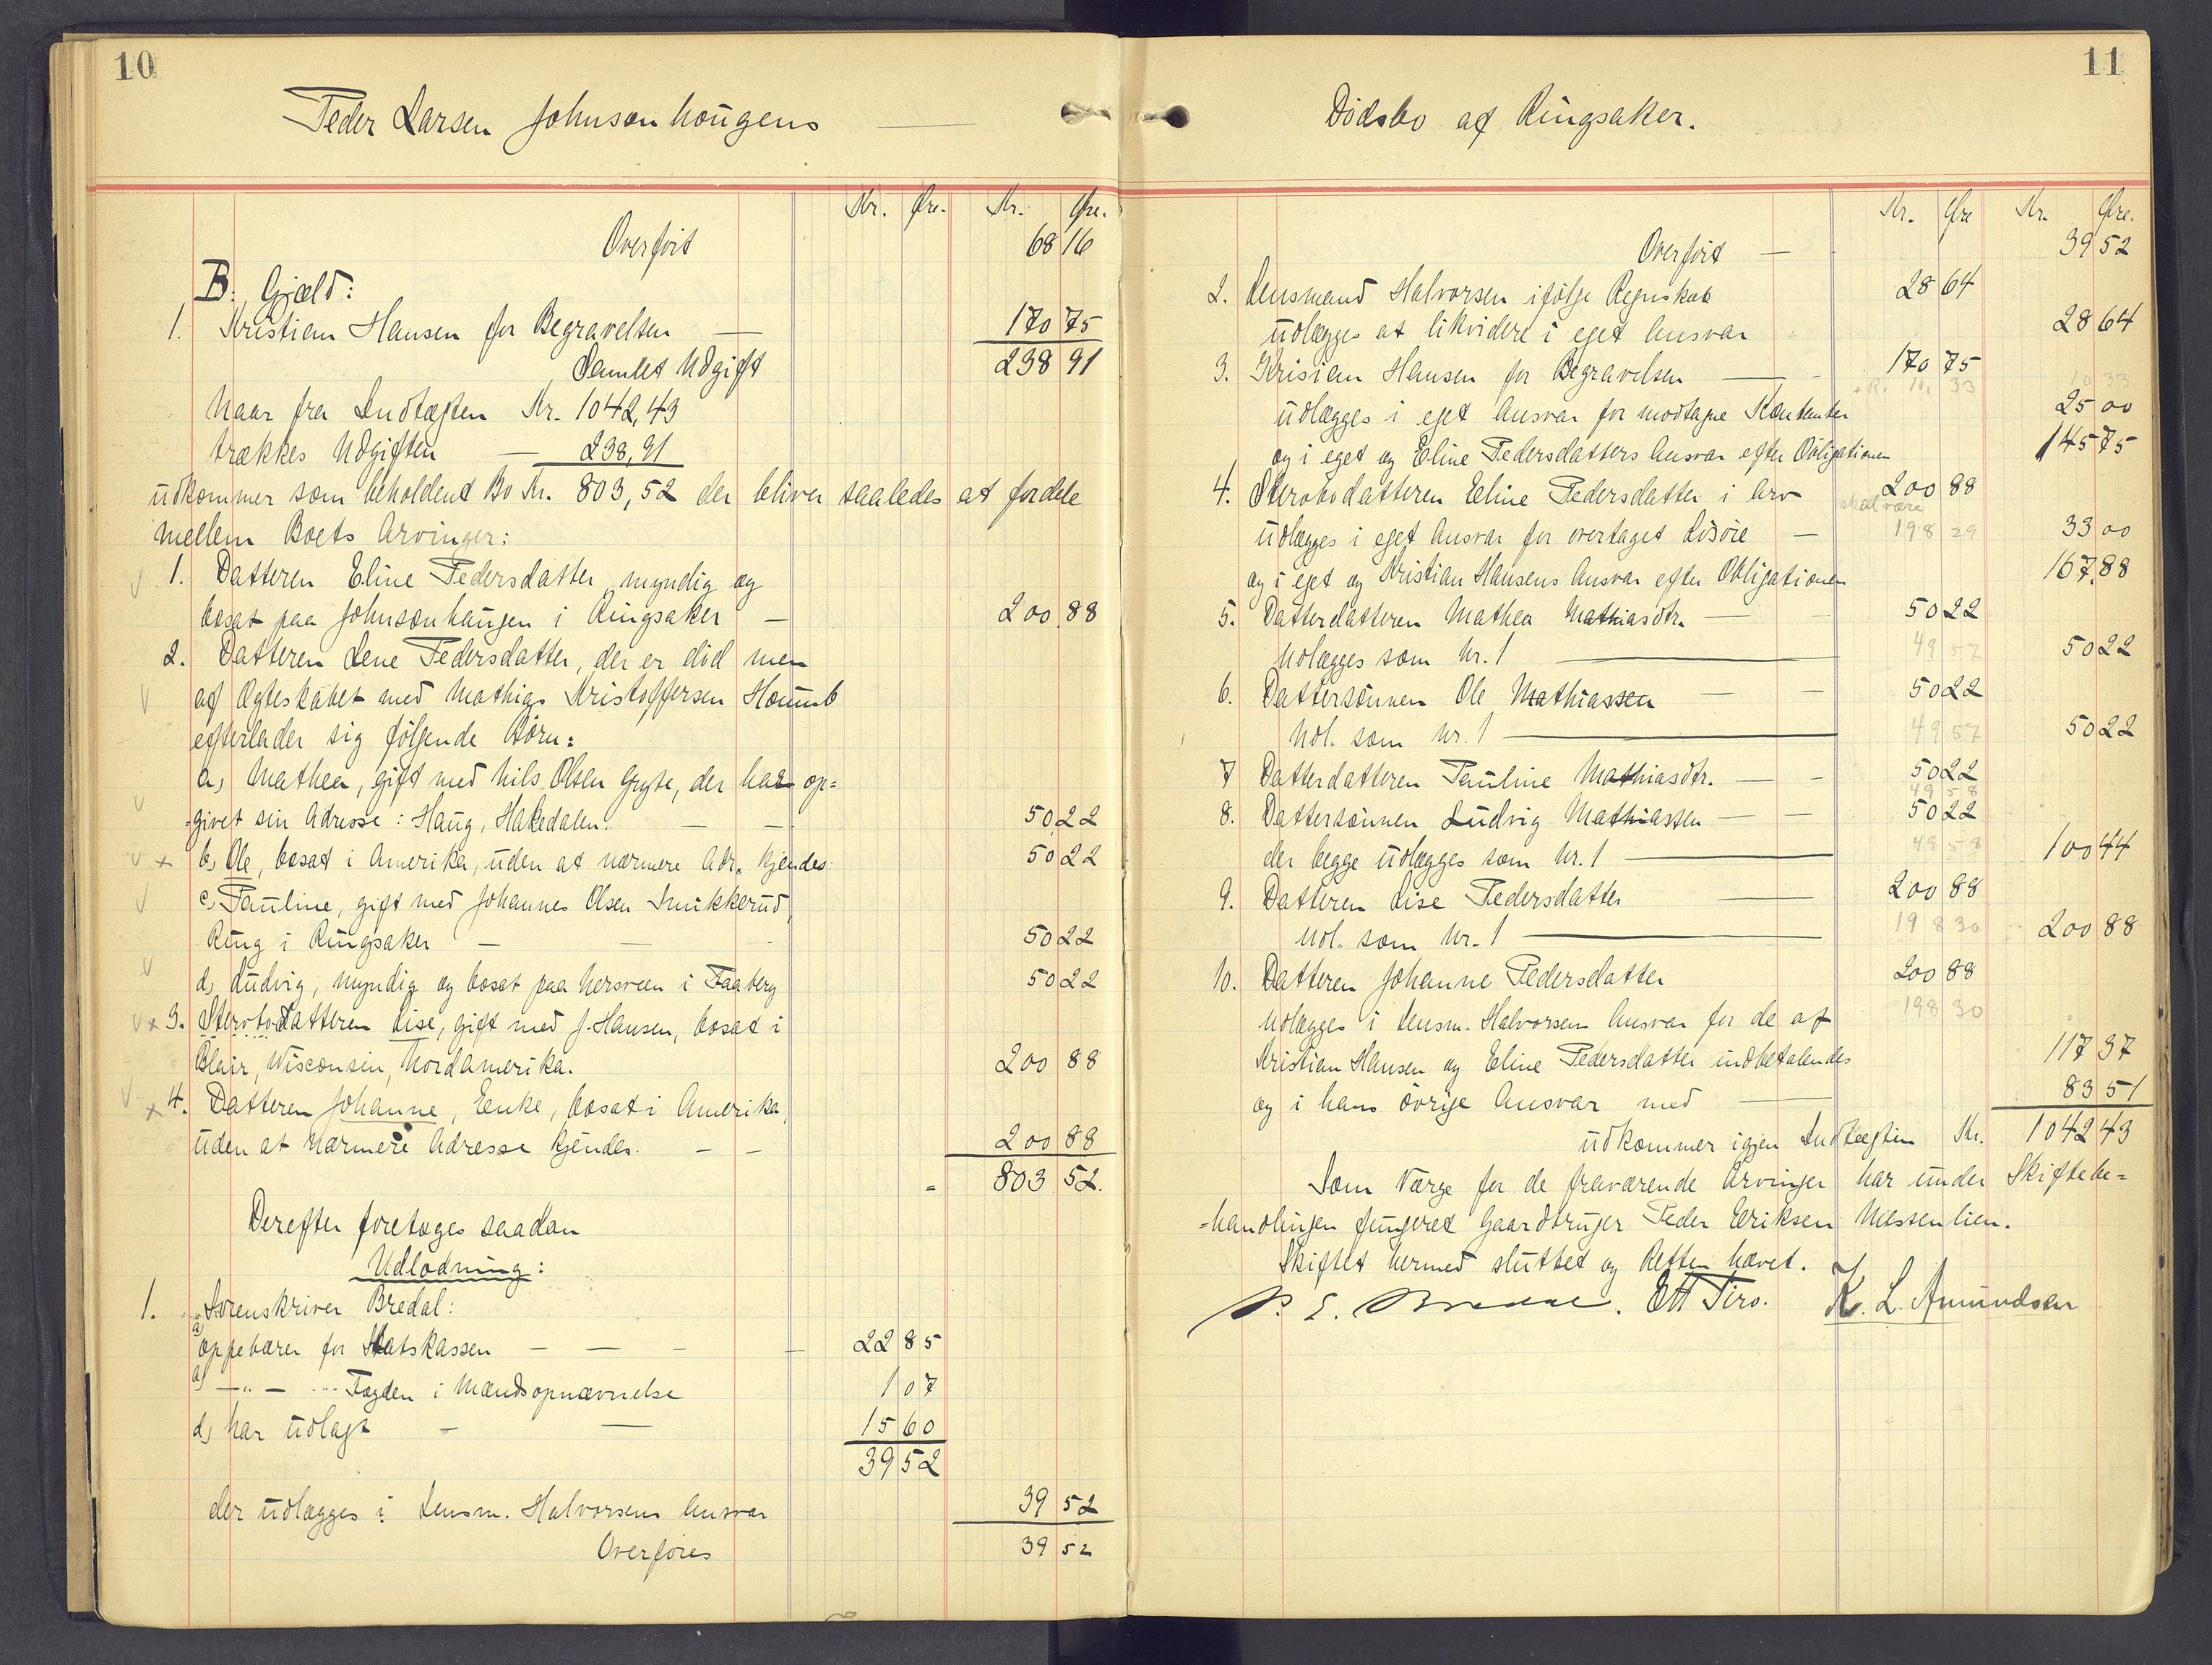 10
Peder Larsen Johnsonhougens
Kr. Øre. Kr. Øre.
Overført 68 16
B. Gjæld:
1. Kristian Hansen for Begravelsen — 170 75
Samlet Udgift 238 91
Naar fra Indtægten Kr. 1042,43
trækkes Udgiften — 238,91
udkommer som beholdent Bo Kr. 803,52 der bliver saaledes at fordele
mellem Boets Arvinger:
1. Datteren Eline Pedersdatter, myndig og
bosat paa Johnsonhaugen i Ringsaker — 200 88
2. Datteren Lene Pedersdatter, der er død men
af Ægteskabet med Mathias Kristoffersen Houmb
efterlader sig følgende Børn:
a, Mathea, gift med Nils Olsen Gryte, der har op=
=givet sin Adresse: Haug, Hakedalen. — — 50 22
b, Ole, bosat i Amerika, uden at nærmere Adr. kjendes 50 22
c, Pauline, gift med Johannes Olsen Smikkerud,
Ring i Ringsaker — — 50 22
d, Ludvig, myndig og bosat paa Nersveen i Faaberg 50 22
3. Stervbodatteren Lise, gift med J. Hansen, bosat i
Blair, Wisconsin, Nordamerika. 200 88
4. Datteren Johanne, Enke, bosat i Amerika,
uden at nærmere Adresse kjendes. — — 200 88
= 803 52.
Derefter foretoges saadan
Udlodning:
1. Sorenskriver Bredal:
a, oppebærer for Statskassen — — — 22 85
a, — " — " Fogden i Mandsopnævnelse 1 07
d, har udlagt — — 15 60
39 52
der udlægges i Lensm. Halvorsens Ansvar 39 52
Overføres 39 52
11
Dødsbo af Ringsaker.
Kr. Øre Kr. Øre.
Overført — 39 52
2. Lensmand Halvorsen ifølge Regnskab 28 64
udlægges at likvidere i eget Ansvar 28 64
3. Krisian Hansen for Begravelsen — 170 75
+R. 10. 33 10 33
udlægges i eget Ansvar for modtagne Kontanter 25 00
og i eget og Eline Pedersdatters Ansvar efter Obligationen 145 75
4. Stervbodatteren Eline Pedersdatter i Arv 200 88
skal være
udlægges i eget Ansvar for overtaget Løsøre — 198 29 33 00
og i eget og Kristian Hansens Ansvar efter Obligationen 167 88
5. Datterdatteren Mathea Mathiasdtr. — — 50 22
Udlægges som Nr. 1 — 49 57 50 22
6. Dattersønnen Ole Mathiassen — — 50 22
Udl. som Nr. 1 — 49 57 50 22
7 Datterdatteren Pauline Mathiasdtr. — — 50 22
49 58
8. Dattersønnen Ludvig Mathiassen — — 50 22
der begge udlægges som Nr. 1 — 49 58 100 44
9. Datteren Lise Pedersdatter — 200 88
Udl. som Nr. 1 — 198 30 200 88
10. Datteren Johanne Pedersdatter 200 88
Udlægges i Lensm. Halvorsens Ansvar for de af 198 30
Kristian Hansen og Eline Pedersdatter indbetalendes 117 37
og i hans øvrige Ansvar med — 83 51
udkommer igjen Indtægten Kr. 1042 43
Som Værge for de fraværende Arvinger har under Skiftebe=
=handlingen fungeret Gaardbruger Peder Eriksen Messenlien.
Skiftet hermed sluttet og Retten hævet.
P. E. Bredal. Ett Tiro. K. L. Amundsen